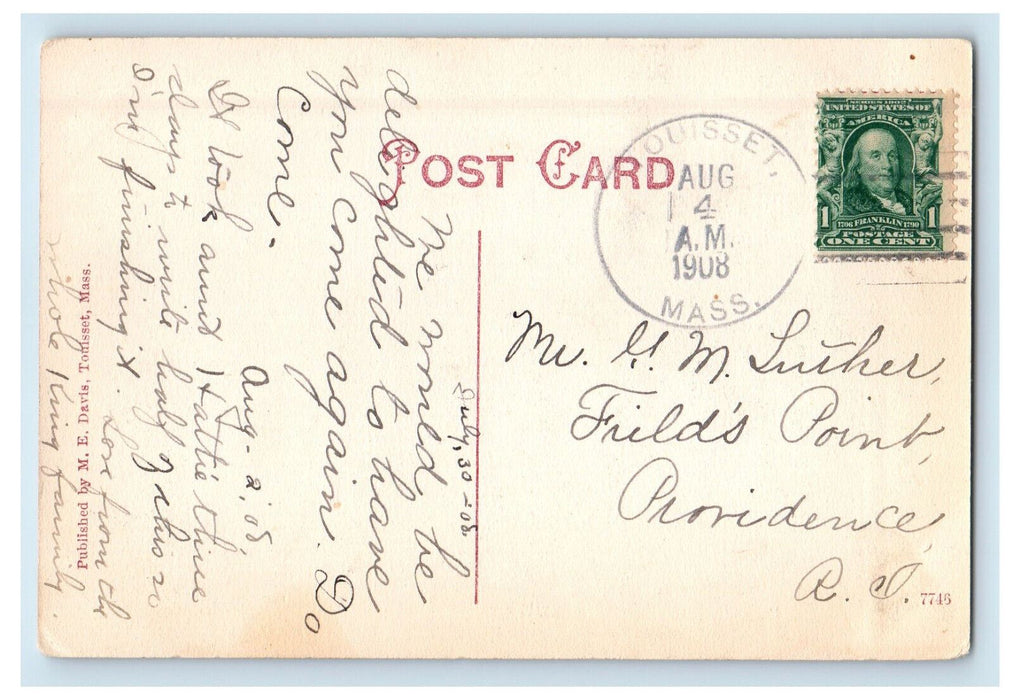 POST CARD
TOUISSET,
AUG
4
A.M.
1908
MASS.
SERIES 1902
UNITED STATES OF
AMERICA
1 1706 FRANKLIN 1790 1
POSTAGE
ONE CENT
Mr. G. M. Luther,
Field's Point,
Providence,
R. I.
7746
July, 30 - 08
We would be
delighted to have
you come again. Do
Come.
Aug - 2, 08,
It took aunt Hattie three
days to write half of this so
I'm finishing it. Love from the
whole King family.
Published by M. E. Davis, Touisset, Mass.